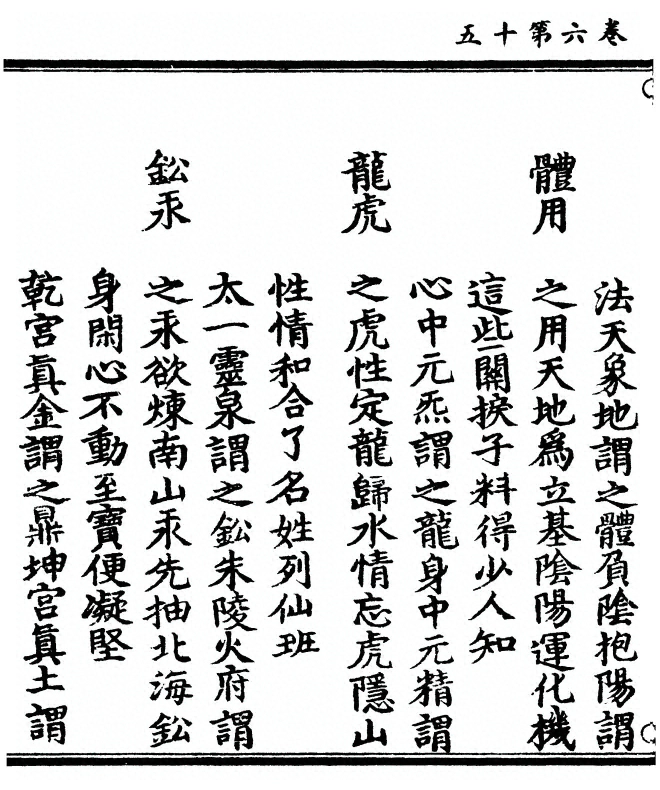 卷六第十五
法天象地謂之體負陰抱陽謂
體用
之用天地爲立基陰陽運化機
這些關捩子料得少人知
心中元炁謂之龍身中元精謂
龍虎
之虎性定龍歸水情忘虎隱山
性情和合了名姓列仙班
太一靈泉謂之鈆朱陵火府謂
鈆汞
之汞欲煉南山汞先抽北海鈆
身閑心不動至寶便凝堅
乾宮眞金謂之鼎坤宮眞土謂